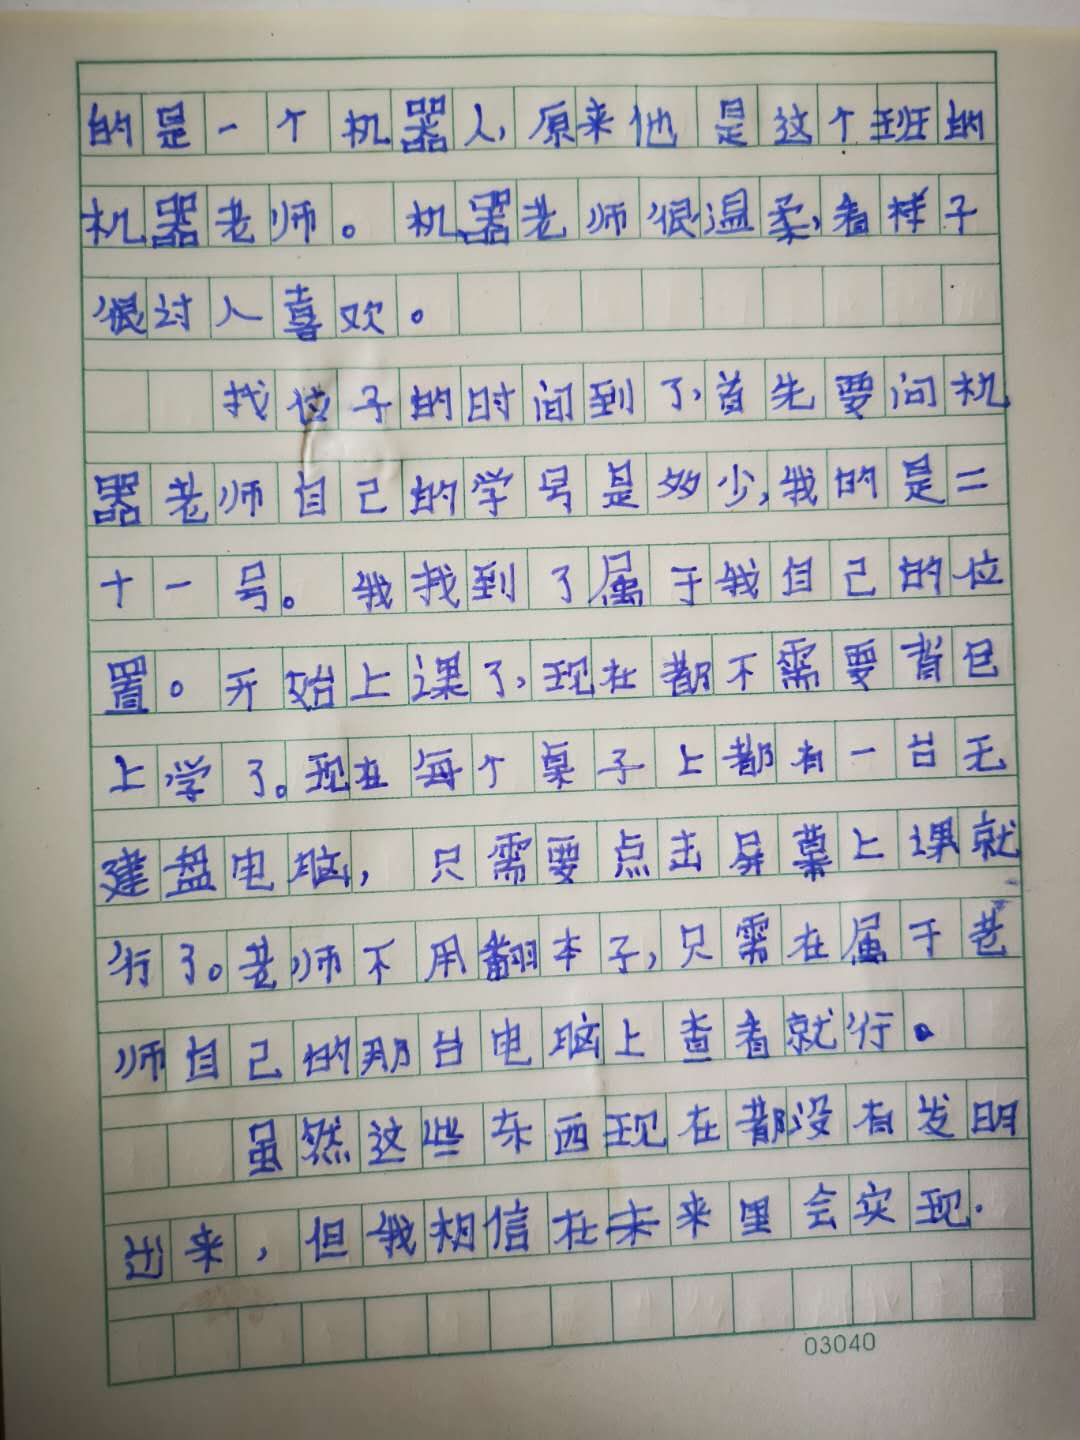 的是一个机器人,原来他是这个班的
机器老师。机器老师很温柔,看样子
很讨人喜欢。
找位子的时间到了,首先要问机
器老师自己的学号是多少,我的是二
十一号。我找到了属于我自己的位
置。开始上课了,现在都不需要背包
上学了。现在每个桌子上都有一台无
建盘电脑,只需要点击屏幕上课就
行了。老师不用翻本子,只需在属于老
师自己的那台电脑上查看就行。
虽然这些东西现在都没有发明
出来,但我相信在未来里会实现.
03040